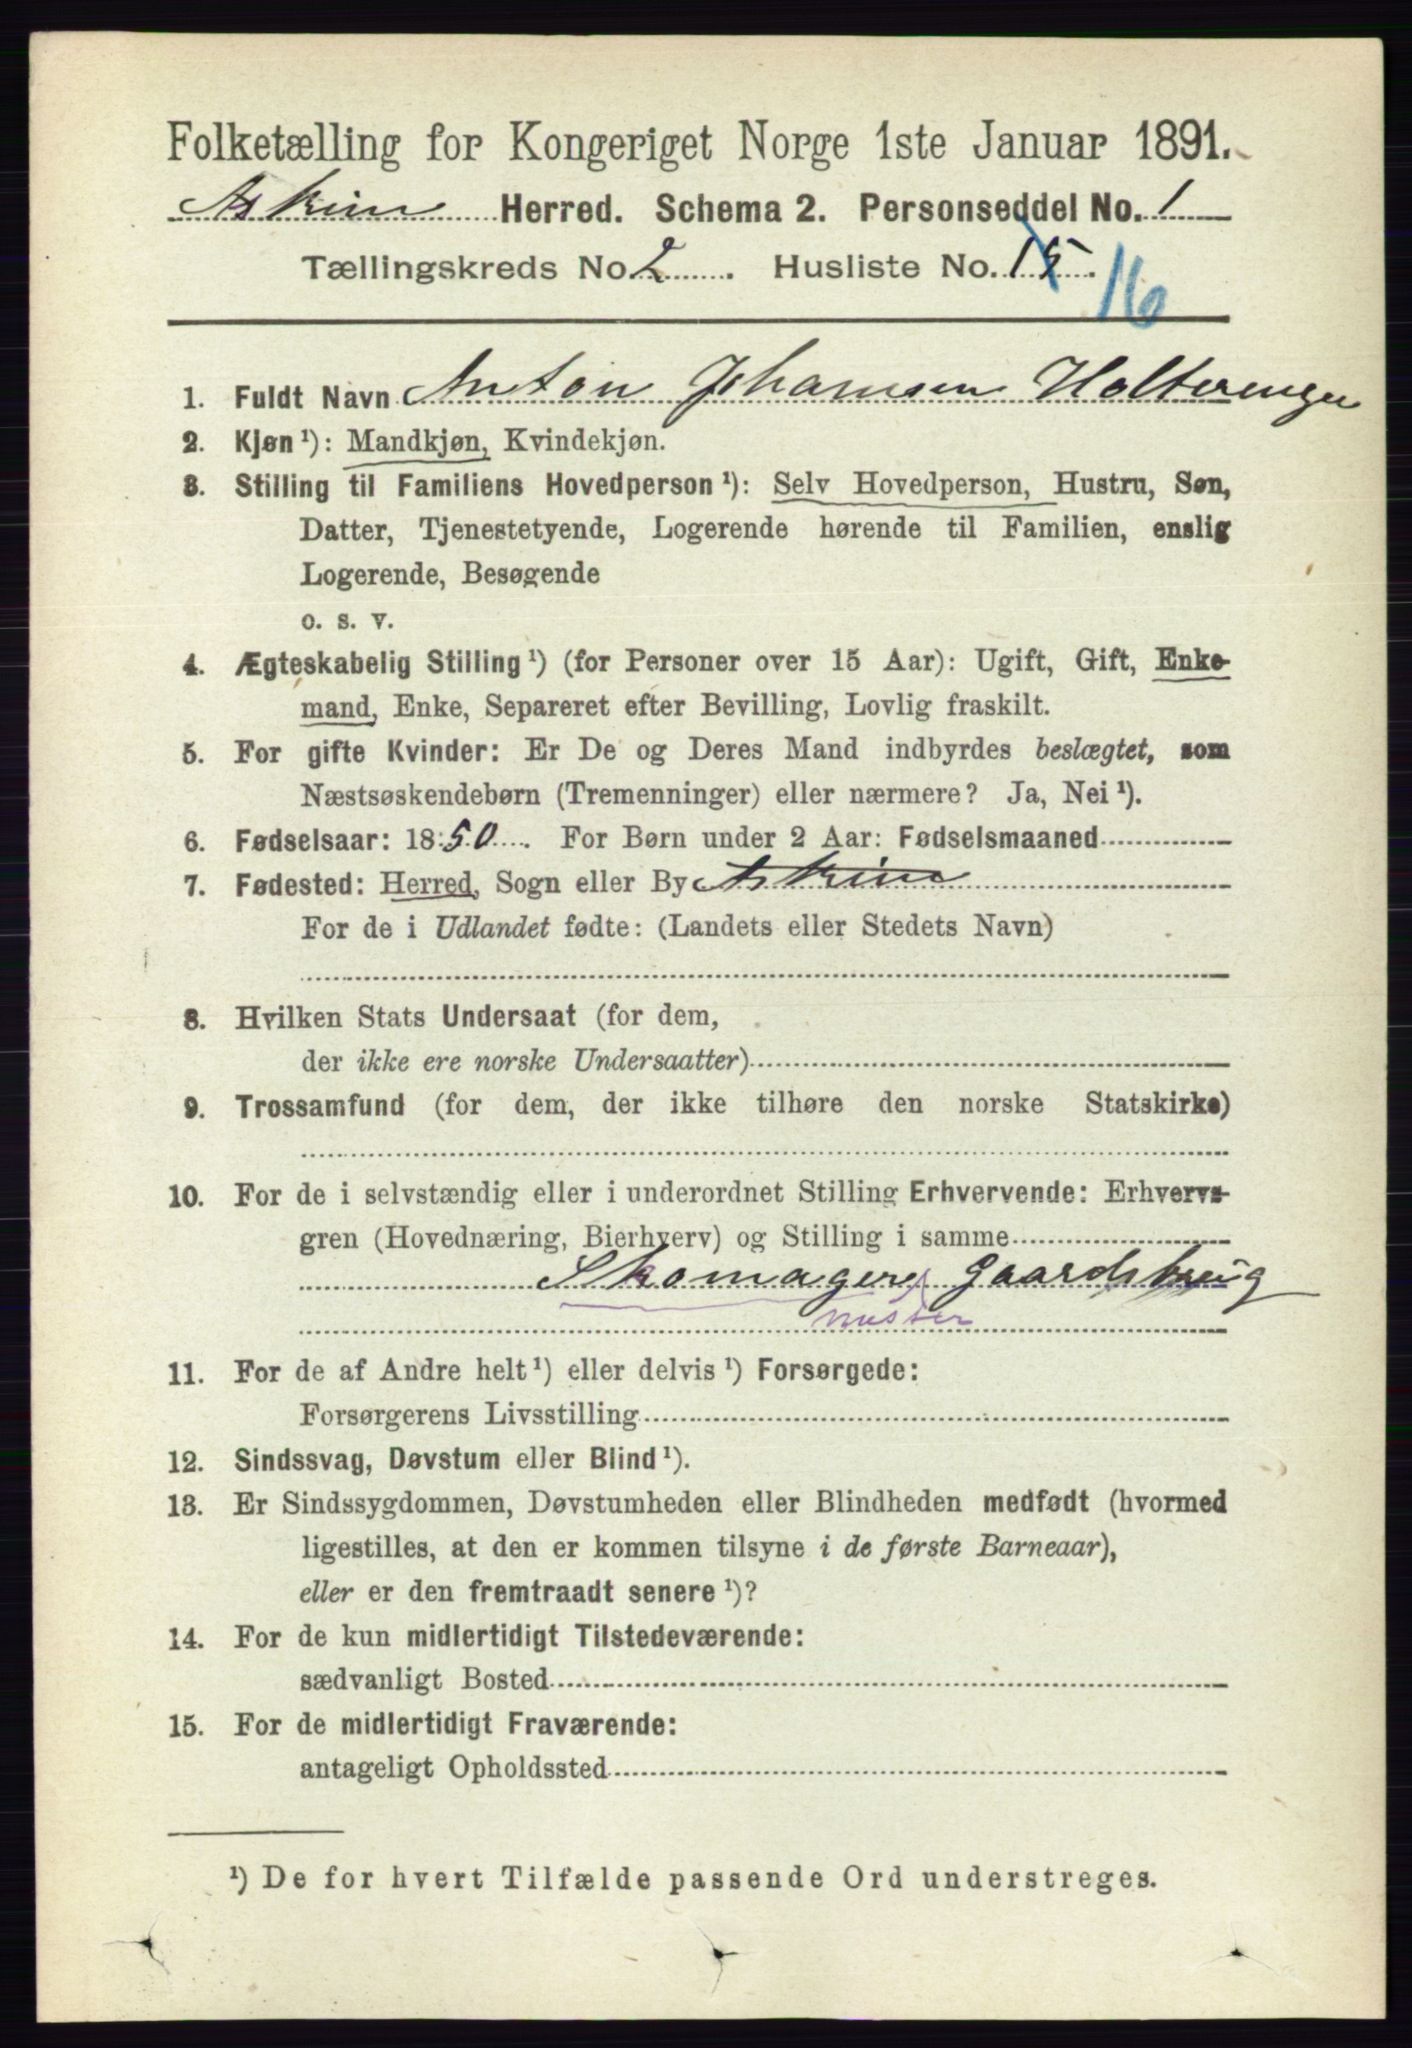 Folketælling for Kongeriget Norge 1ste Januar 1891.
Askim Herred. Schema 2. Personseddel No. 1
Tællingskreds No 2. Husliste No. 15. 16
1. Fuldt Navn Anton Johansen Holterengen
2. Kjøn ¹): Mandkjøn, Kvindekjøn.
3. Stilling til Familiens Hovedperson ¹): Selv Hovedperson, Hustru, Søn,
Datter, Tjenestetyende, Logerende hørende til Familien, enslig
Logerende, Besøgende
o. s. v.
4. Ægteskabelig Stilling ¹) (for Personer over 15 Aar): Ugift, Gift, Enke-
mand, Enke, Separeret efter Bevilling, Lovlig fraskilt.
5. For gifte Kvinder: Er De og Deres Mand indbyrdes beslægtet, som
Næstsøskendebørn (Tremenninger) eller nærmere? Ja, Nei ¹).
6. Fødselsaar: 1850. For Børn under 2 Aar: Fødselsmaaned
7. Fødested: Herred, Sogn eller By Askim
For de i Udlandet fødte: (Landets eller Stedets Navn)
8. Hvilken Stats Undersaat (for dem,
der ikke ere norske Undersaatter)
9. Trossamfund (for dem, der ikke tilhøre den norske Statskirke)
10. For de i selvstændig eller i underordnet Stilling Erhvervende: Erhvervs-
gren (Hovednæring, Bierhverv) og Stilling i samme
Skomager Gaardsbrug
mester
11. For de af Andre helt ¹) eller delvis ¹) Forsørgede:
Forsørgerens Livsstilling
12. Sindssvag, Døvstum eller Blind ¹).
13. Er Sindssygdommen, Døvstumheden eller Blindheden medfødt (hvormed
ligestilles, at den er kommen tilsyne i de første Barneaar),
eller er den fremtraadt senere ¹)?
14. For de kun midlertidigt Tilstedeværende:
sædvanligt Bosted
15. For de midlertidigt Fraværende:
antageligt Opholdssted
¹) De for hvert Tilfælde passende Ord understreges.